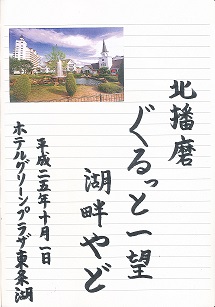 北播磨
ぐるっと一望
湖畔やど
平成二五年十月一日
ホテルグリーンプラザ東条湖